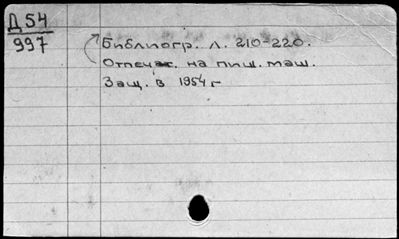 Д 54
997
Библиогр. л. 210-220.
Отпечат. на пиш. маш.
Защ. в 1954 г